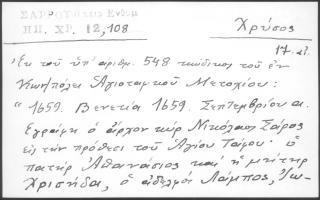 ΣΑΡΡΟΥ Ενθυμ
ΗΠ. ΧΡ. 12, 108
Χρύσος
17. αι.
Ἐκ τοῦ ὑπ' ἀριθμ. 548 κώδικος τοῦ ἐν
Κων/πόλει Ἁγιοταφικοῦ Μετοχίου:
"1659. Βενετία 1659. Σεπτεμβρίου α.
Ἐγράφη ὁ ἄρχον κὺρ Νικόλαος Σάρος
εἰς τὴν πρόθεσι τοῦ Ἁγίου Τάφου· ὁ
πατὴρ Ἀθανάσιος καὶ ἡ μήτηρ
Χρισηίδα, ὁ ἀδελφὸς Λάμπος, Ἰω-